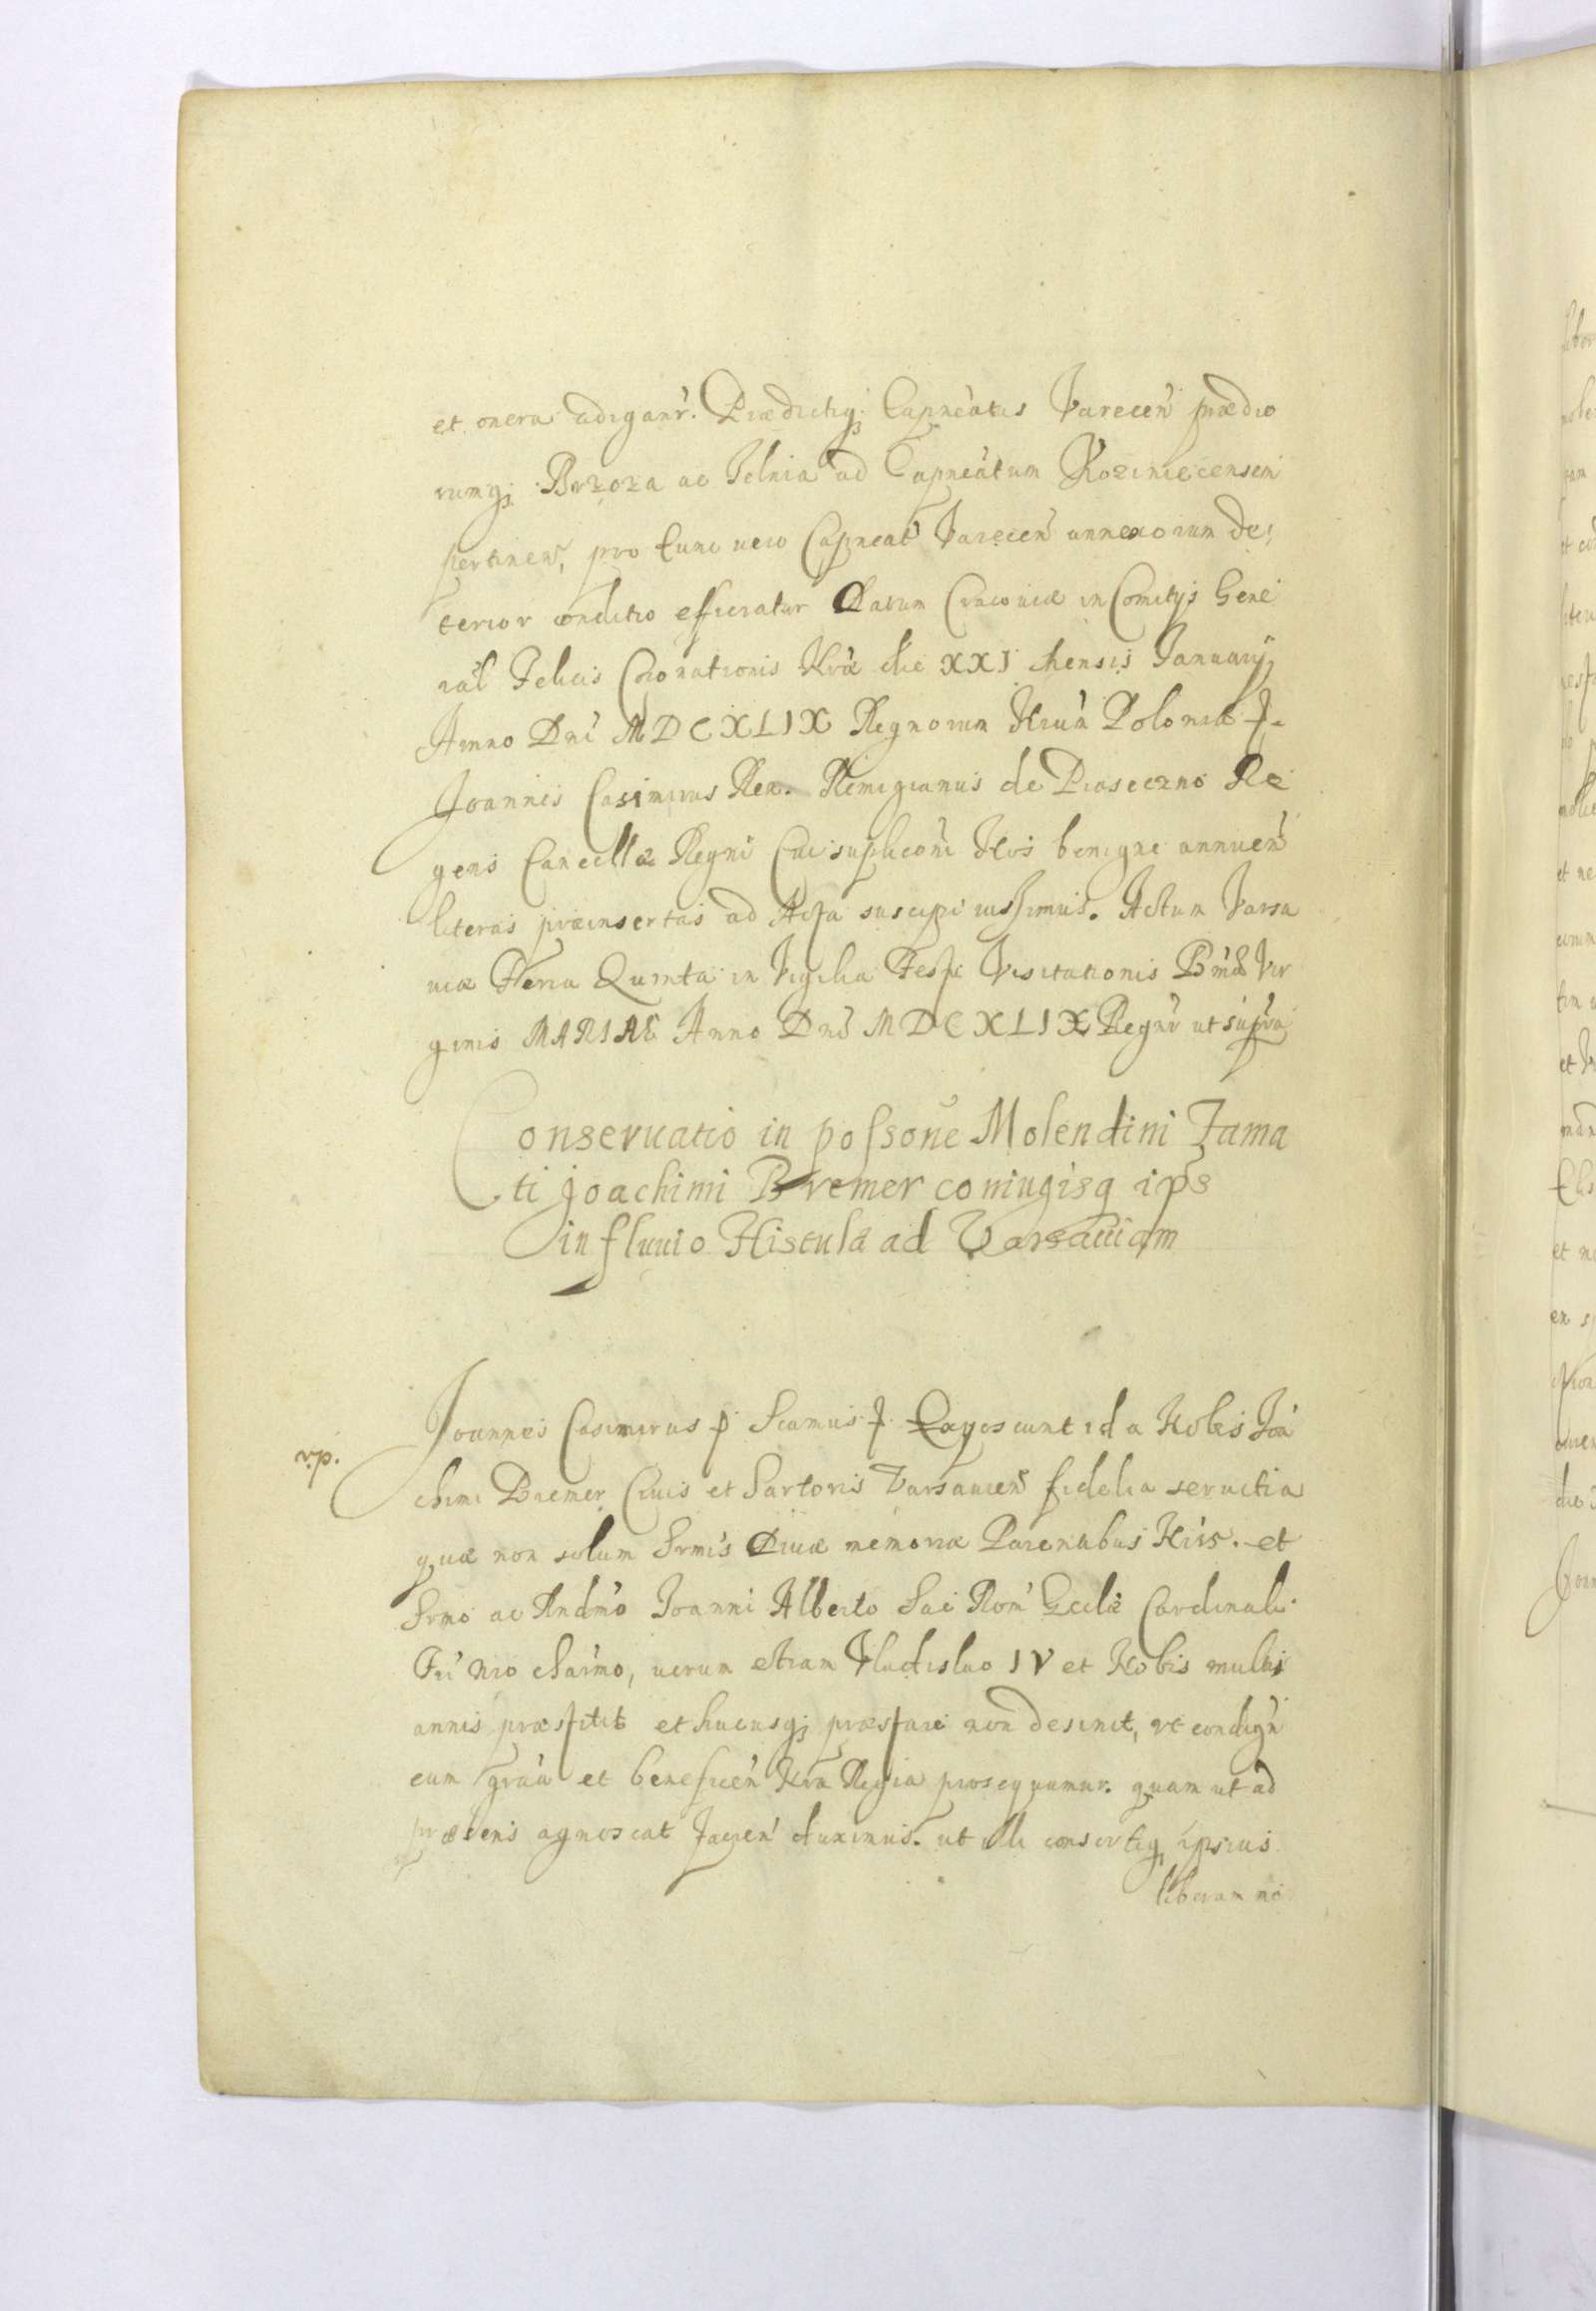 et onera adiganr. Prædictiq; Capneatus Varecen prædio
rumq; Brzoza ac Jelnia ad Capneatum Kozinicensem
pertinen, pro tunc uero Capneat Varecen annexorum de
terior conditio efficiatur Datum Cracouiæ in Comitijs Gene
ral Felicis Coronationis Nræ die XXI Mensis Januarij
Anno Dni MDCXLIX Regnorum Nrum Poloniæ J.
Joannes Casimirus Rex. Remigianus de Piaseczno Re
gens Cancellæ Regni Cui supliconi Nos benigne annuen
literas præinsertas ad Acta suscipi iussimus. Actum Varsa
uiæ Feria Quinta in Vigilia Festi Visitationis Bmæ Vir
ginis MARIAE Anno Dni MDCXLIX Regnr ut supra
Conseruatio in possone Molendini Fama
ti Joachimi Bremer coniugisq ips
in fluuio Histula ad Varsauiam
Joannes Casimirus p Scamus J. Exposcunt id a Nobis Joa
chimi Bremer Ciuis et Sartoris Varsauien fidelia seruitia
quæ non solum Srmis Diuæ memoriæ Parentibus Nris. et
Srmo ac Rndmo Joanni Alberto Sac Rom Eccliæ Cardinali
Fri Nro charmo, uerum etiam Vladislao IV et Nobis multis
annis præstitit et hucusq; præstare non desinit, vt condign
eum gràa et beneficen Nra Regia prosequamur. quam ut ad
præsens agnoscat facien duximus. ut illi consortiq ipsius
liberam no